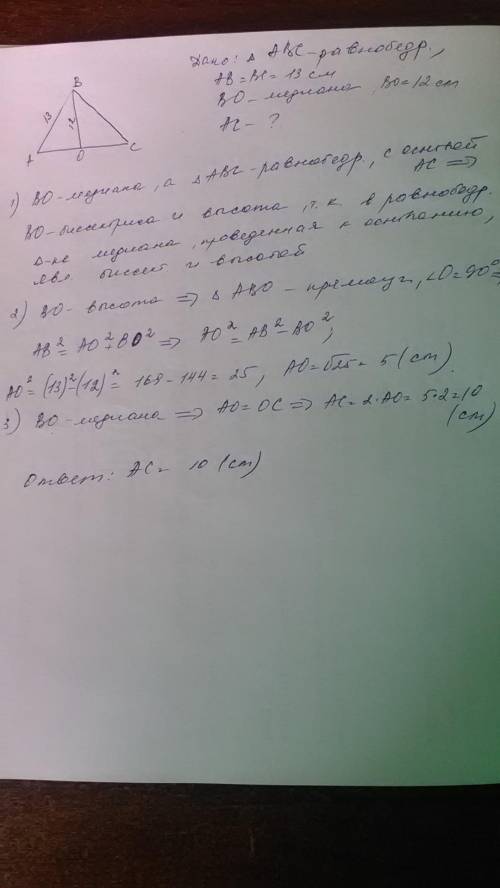 Дано: △ ABC - равнобедр.,
AB = BC = 13 см
BO - медиана, BO = 12 см
AC - ?
B
13
12
A
O
C
1) BO - медиана, а △ ABC - равнобедр., с основой
AC ⇒
BO - биссектриса и высота, т.к. в равнобедр.
△-ке медиана, проведенная к основанию,
явл. биссект и высотой
2) BO - высота ⇒ △ ABO - прямоуг, ∠O = 90° ⇒
AB² = AO² + BO² ⇒ AO² = AB² - BO²;
AO² = (13)² - (12)² = 169 - 144 = 25, AO = √25 = 5 (см).
3) BO - медиана ⇒ AO = OC ⇒ AC = 2·AO = 5·2 = 10
(см)
Ответ: AC = 10 (см)